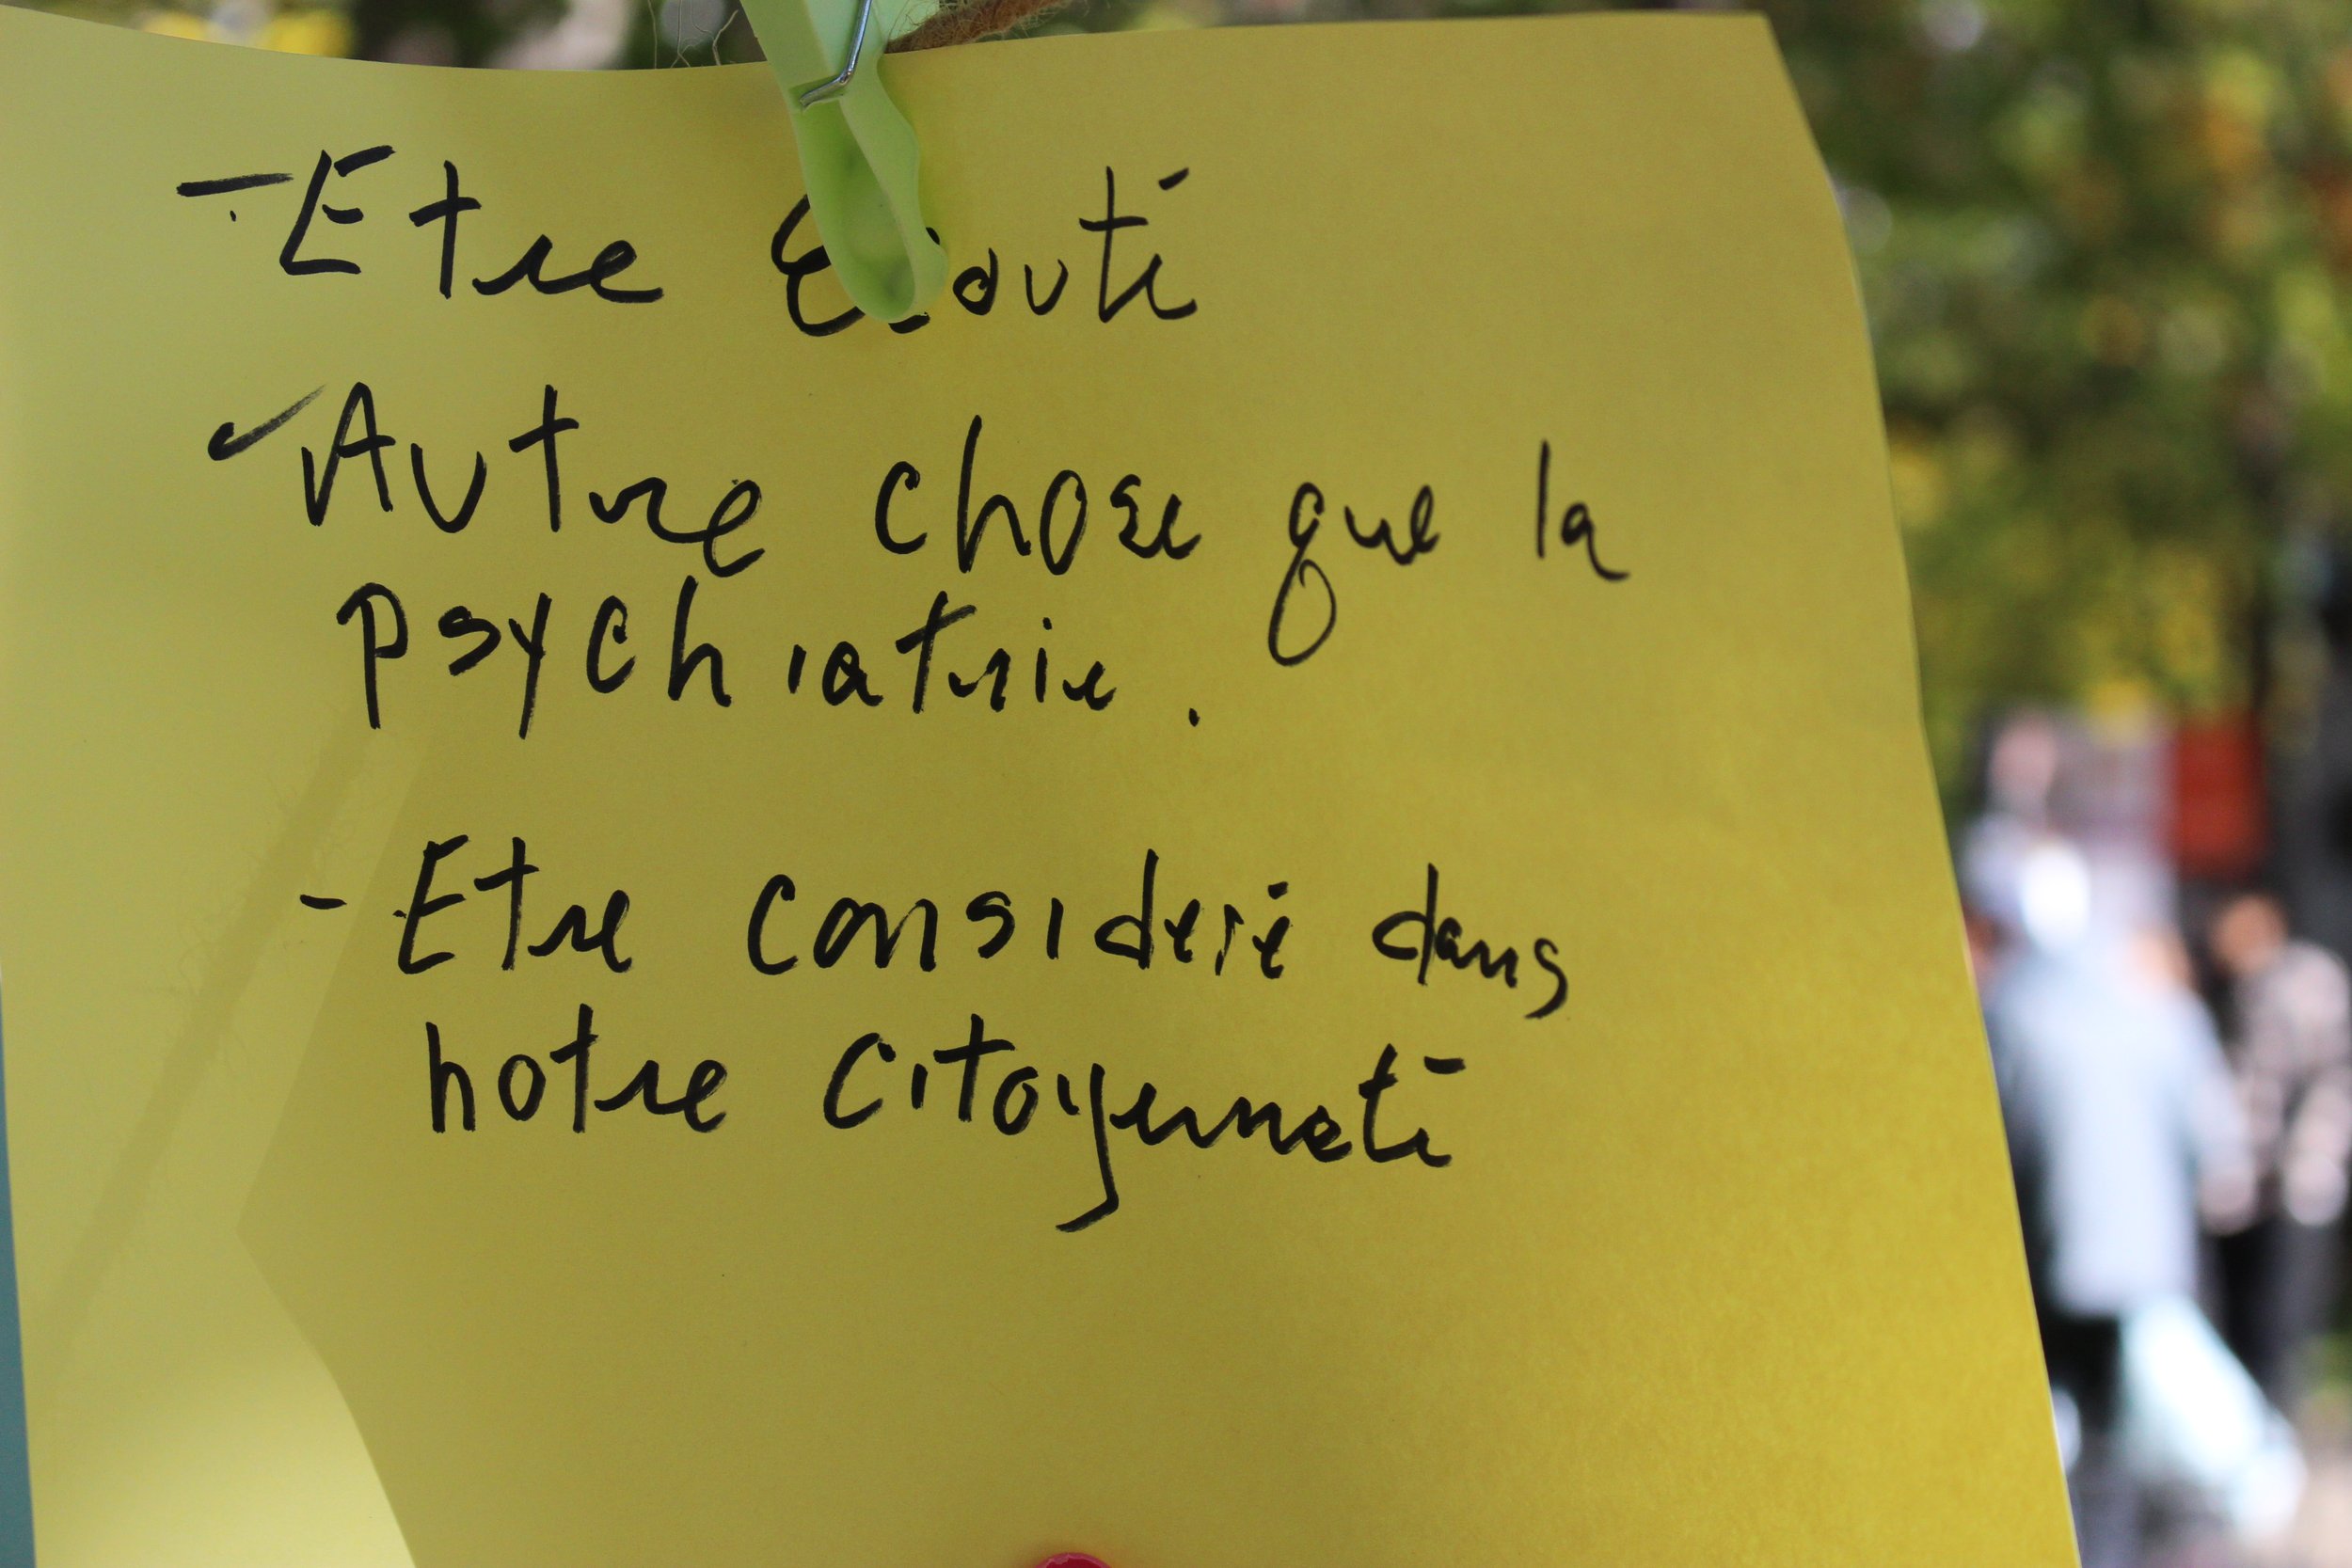 - Etre Ecouté
- Autre chose que la
psychiatrie.
- Etre consideré dans
notre citoyenneté